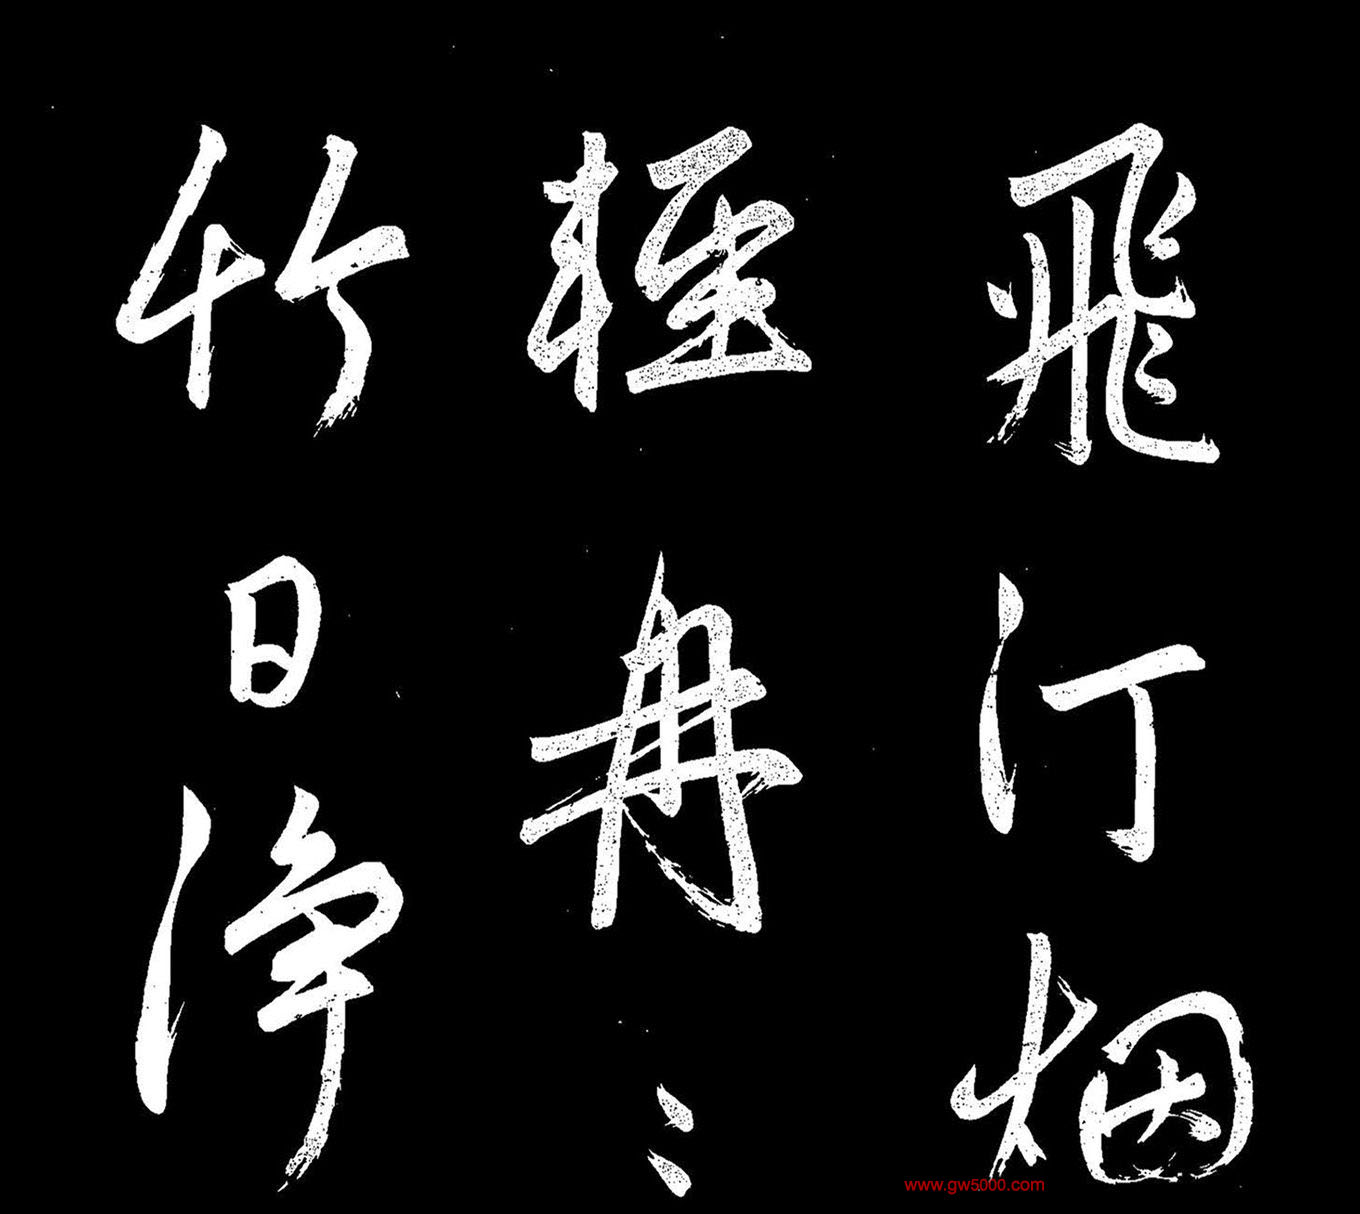 飛汀烟
輕冉〻
竹日淨
www.gw5000.com